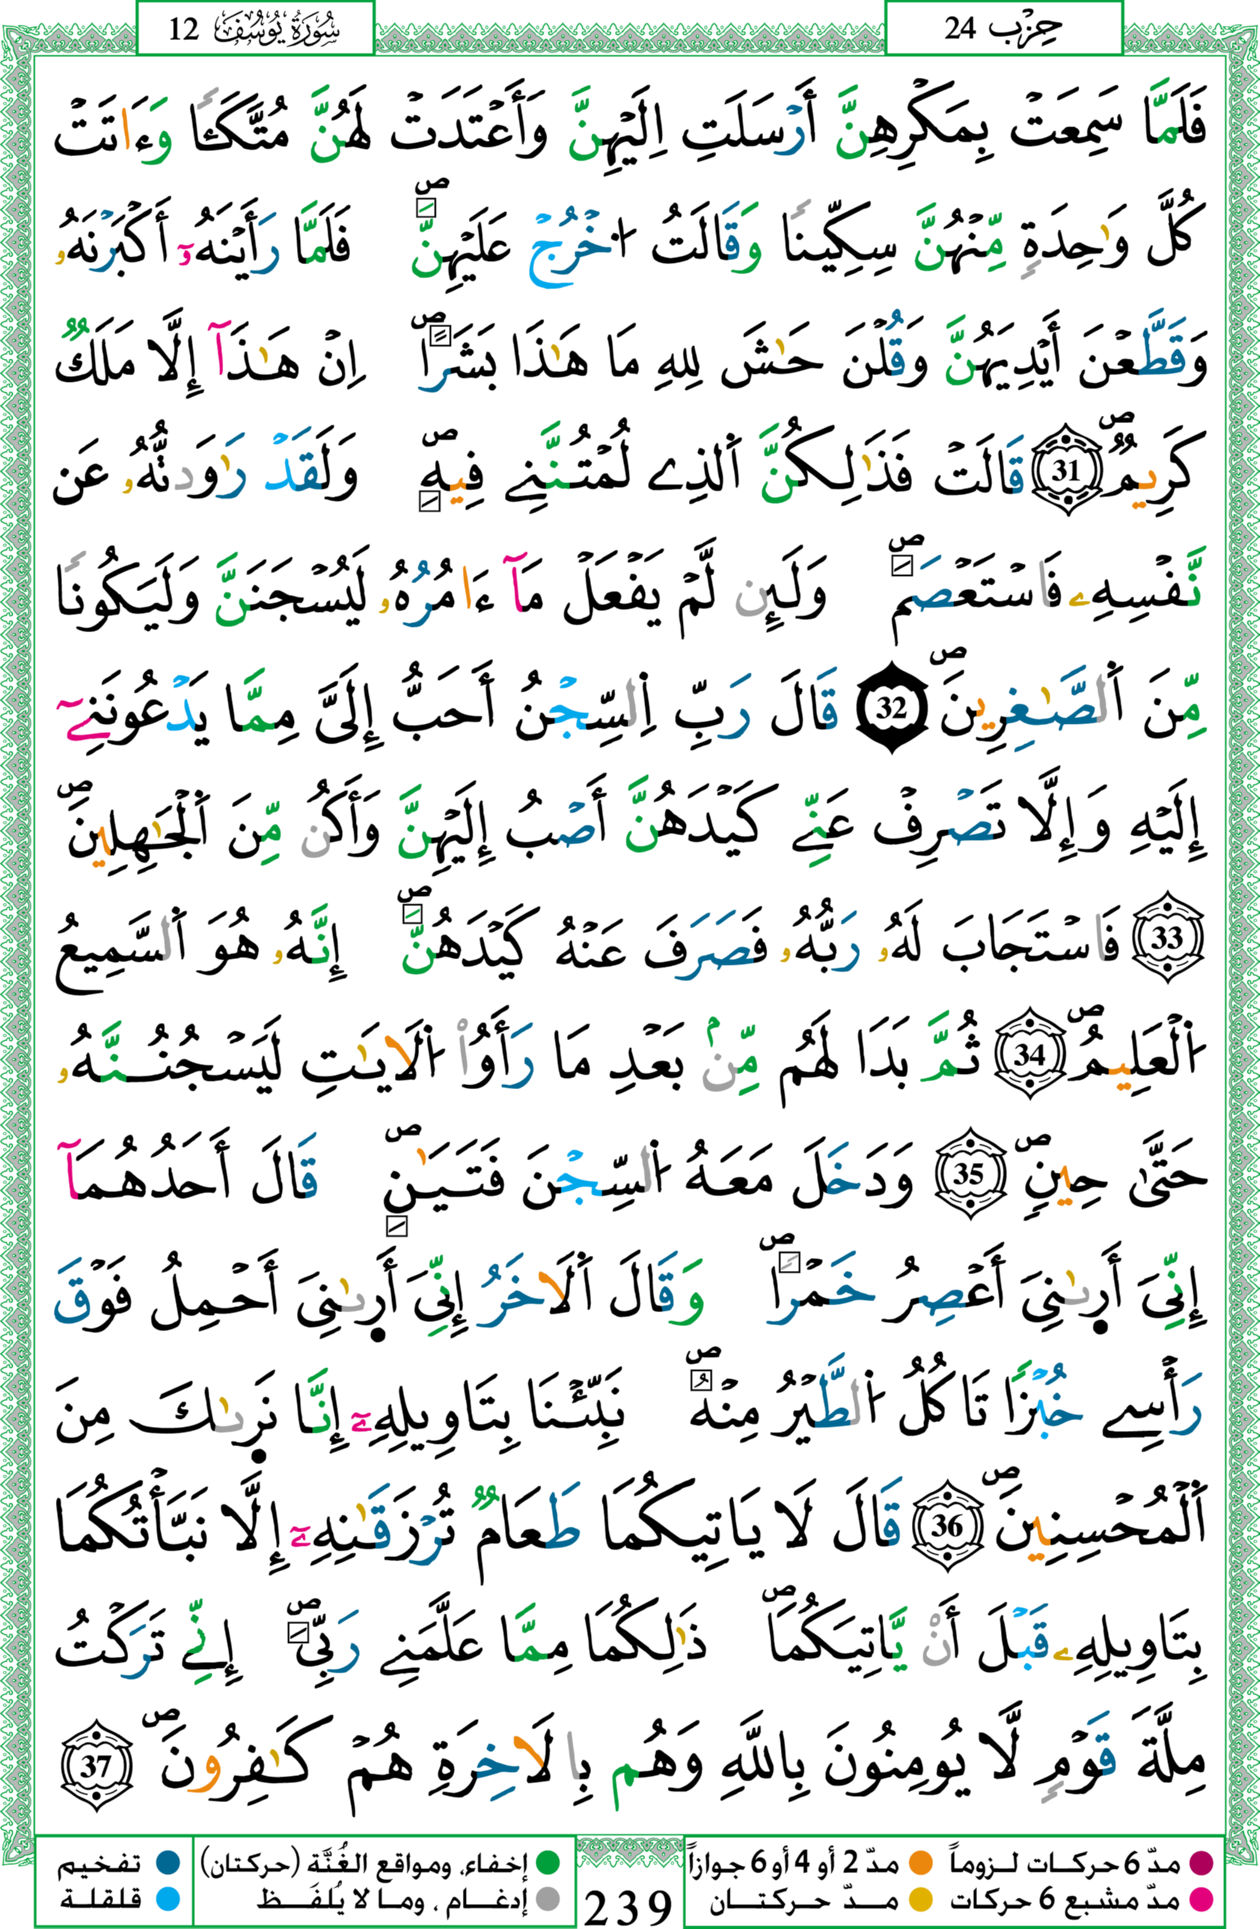 حِزْب 24
سُورَةُ يُوسُفَ 12
فَلَمَّا سَمِعَتْ بِمَكْرِهِنَّ أَرْسَلَتِ اِلَيْهِنَّ وَأَعْتَدَتْ لَهُنَّ مُتَّكَـٔاً وَءَاتَتْ
كُلَّ وَٰحِدَةٍ مِّنْهُنَّ سِكِّيناً وَقَالَتُ اُ۟خْرُجْ عَلَيْهِنَّ ۖ فَلَمَّا رَأَيْنَهُۥٓ أَكْبَرْنَهُۥ
وَقَطَّعْنَ أَيْدِيَهُنَّ وَقُلْنَ حَٰشَ لِلهِ مَا هَٰذَا بَشَراًۖ اِنْ هَٰذَآ إِلَّا مَلَكٌ
كَرِيمٌۖ 31 قَالَتْ فَذَٰلِكُنَّ اَ۬لذِے لُمْتُنَّنِے فِيهِۖ وَلَقَدْ رَٰوَدتُّهُۥ عَن
نَّفْسِهِۦ فَاسْتَعْصَمَۖ وَلَئِن لَّمْ يَفْعَلْ مَآ ءَامُرُهُۥ لَيُسْجَنَنَّ وَلَيَكُوناً
مِّنَ اَ۬لصَّٰغِرِينَۖ 32 قَالَ رَبِّ اِ۬لسِّجْنُ أَحَبُّ إِلَىَّ مِمَّا يَدْعُونَنِےٓ
إِلَيْهِ وَإِلَّا تَصْرِفْ عَنِّے كَيْدَهُنَّ أَصْبُ إِلَيْهِنَّ وَأَكُن مِّنَ اَ۬لْجَٰهِلِينَۖ
33 فَاسْتَجَابَ لَهُۥ رَبُّهُۥ فَصَرَفَ عَنْهُ كَيْدَهُنَّۖ إِنَّهُۥ هُوَ اَ۬لسَّمِيعُ
اُ۬لْعَلِيمُۖ 34 ثُمَّ بَدَا لَهُم مِّنۢ بَعْدِ مَا رَأَوُا۟ اُ۬لَايَٰتِ لَيَسْجُنُنَّهُۥ
حَتَّىٰ حِينٍۖ 35 وَدَخَلَ مَعَهُ اُ۬لسِّجْنَ فَتَيَٰنِۖ قَالَ أَحَدُهُمَآ
إِنِّىَ أَرٜىٰنِىَ أَعْصِرُ خَمْراًۖ وَقَالَ اَ۬لَاخَرُ إِنِّىَ أَرٜىٰنِىَ أَحْمِلُ فَوْقَ
رَأْسِے خُبْزاً تَاكُلُ اُ۬لطَّيْرُ مِنْهُۖ نَبِّئْنَا بِتَاوِيلِهِۦٓ إِنَّا نَرٜىٰكَ مِنَ
اَ۬لْمُحْسِنِينَۖ 36 قَالَ لَا يَاتِيكُمَا طَعَامٌ تُرْزَقَٰنِهِۦٓ إِلَّا نَبَّأْتُكُمَا
بِتَاوِيلِهِۦ قَبْلَ أَنْ يَّاتِيَكُمَاۖ ذَٰلِكُمَا مِمَّا عَلَّمَنِے رَبِّىَۖ إِنِّے تَرَكْتُ
مِلَّةَ قَوْمٍ لَّا يُومِنُونَ بِاللَّهِ وَهُم بِالَاخِرَةِ هُمْ كَٰفِرُونَۖ 37
مدّ 6 حركات لـزوماً
مدّ 2 أو 4 أو 6 جوازاً
إخفاء، ومواقع الغُنَّة (حركتان)
تفخيم
مدّ مشبع 6 حركات
مدّ حركتــان
إدغــام ، ومـا لا يُلفَـظ
قلقلة
239